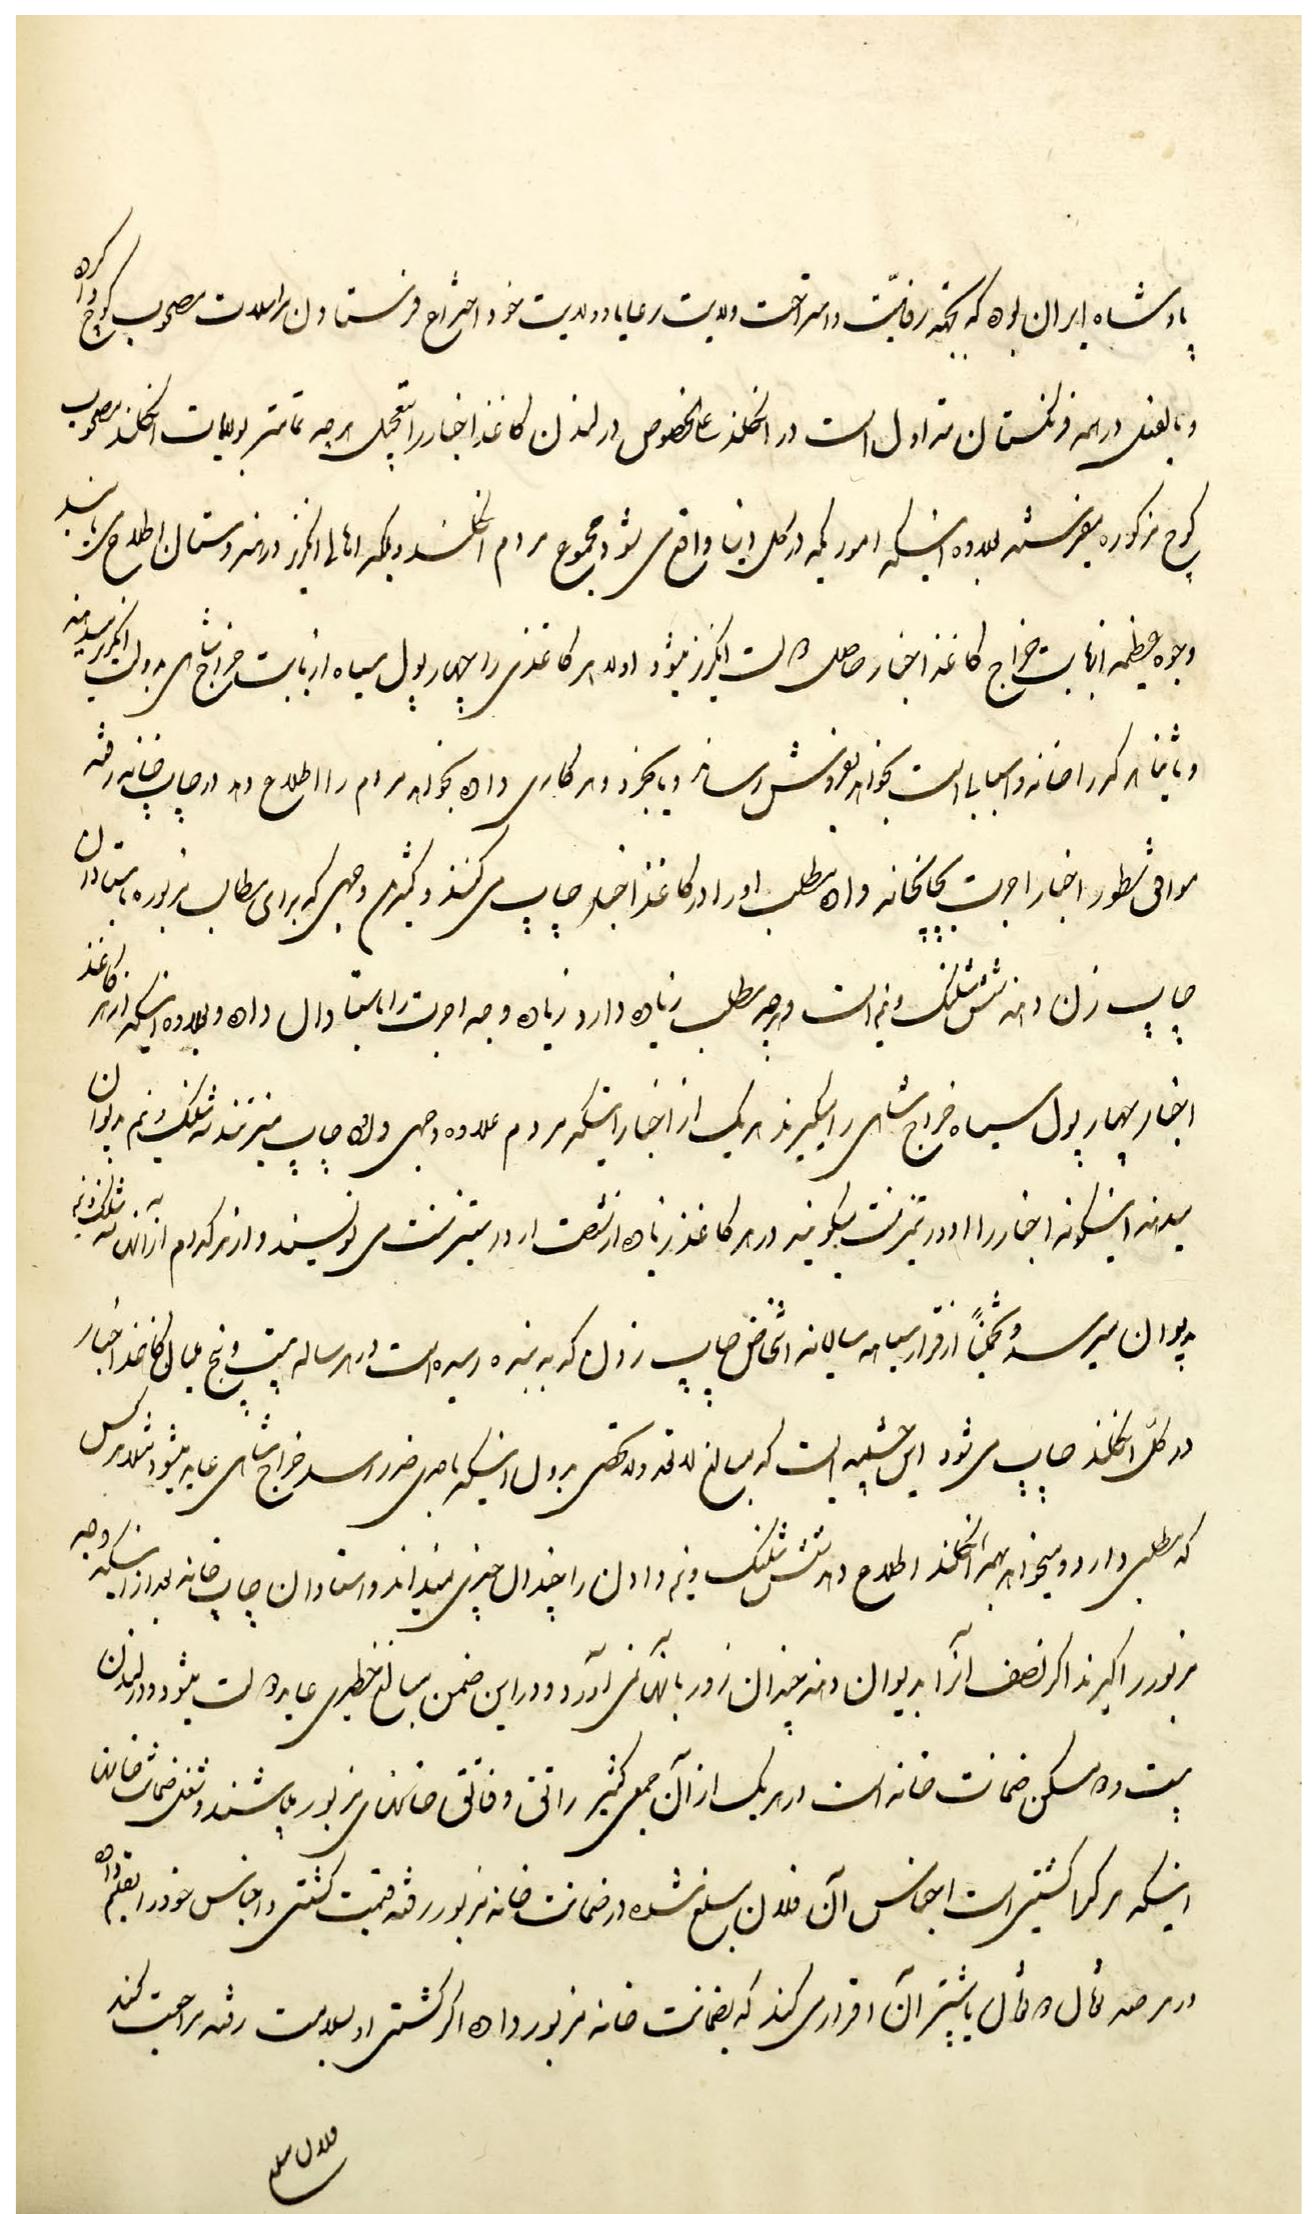 پادشاه ایران بوده که بجهته رفاهیت و استراحت ولایت رعایا و ولایت خود اختراع فرستادن مراسلات مصحوب کوچ کرده
و بالفعل در همه فرنگستان متداول است در انگلند علی الخصوص در لندن کاغذ اخبار را بتعجیل هر چه تمامتر بولایات انگلند مصحوب
کوچ مزکوره میفرستند بعلاوه اینکه اموریکه در کل دنیا واقع می شود مجموع مردم انگلند و بلکه اهالی انگریز در هندوستان اطلاع می یابند
وجوه عظیمه از بابت خراج کاغذ اخبار حاصل دولت انگریز میشود اولا هر کاغذی را چهار پول سیاه از بابت خراج شاهی بدولت انگریز میدهند
و ثانیا هر که را خانه و اسبابی است بخواهد بفروش رساند و یا بخرد و هر کاری داده بخواهد مردم را اطلاع دهد در چاپ خانه رفته
موافق سطور اخبار اجرت بچاپخانه داده مطلب او را در کاغذ اخبار چاپ می کنند و کمترین وجهی که برای مطالب مزبوره باستادان
چاپ زن دهند شش شلنگ و نیم است و هر چه مطلب زیاده دارد زیاده وجه اجرت را باستادان داده و بعلاوه اینکه از هر کاغذ
اخبار چهار پول سیاه خراج شاهی را میگیرند هر یک از اخبار اینکه مردم علاوه وجهی داده چاپ میزنند سه شلنگ و نیم بدیوان
میدهند اینگونه اخبار را ادورتیزمنت میگویند در هر کاغذ زیاده از شصت ادورتیزمنت می نویسند و از هر کدام از آنها سه شلنگ و نیم
بدیوان میرسد و تخمیناً از قرار سیاهه سالیانه اشخاص چاپ زدن که به بنده رسیده است در هر ساله بیست و پنج کاغذ اخبار
در کل انگلند چاپ می شود این چشمه ایست که مبالغ لاتعد ولاتحصی بدون اینکه باحدی ضرر رسد خراج شاهی عاید میشود مثلا هر کس
که مطلبی دارد و میخواهد بهمه انگلند اطلاع دهد شش شلنگ و نیم دادن را چندان چیزی نمیداند و استادان چاپ خانه بعد از اینکه وجه
مزبور را گیرند اگر نصف آنرا بدیوان دهند چندان زور بآنها نمی آورد و در این ضمن مبالغ خطیری عاید دولت میشود و در لندن
بیست و ده مسکن ضمانت خانه است در هر یک از آن جمعی کثیر راتق و فاتق خانهای مزبور میباشند و شغل ضمانت خانها
اینکه هر کرا کشتی است اجناس آن فلان مبلغ شده در ضمانت خانه مزبور رفته قیمت کشتی و اجناس خود را بقلم داده
در هر صد تومان ده تومان یا بیشتر آن اقرار می کند که بضمانت خانه مزبور داده اگر کشتی او بسلامت رفته مراجعت کند
فلان مبلغ